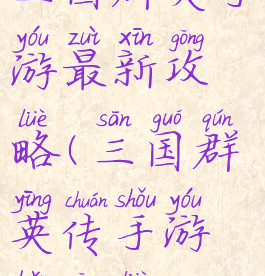 yóu zuì xīn gōng
游最新攻
lüè sān guó qún
略(三国群
yīng chuán shǒu yóu
英传手游